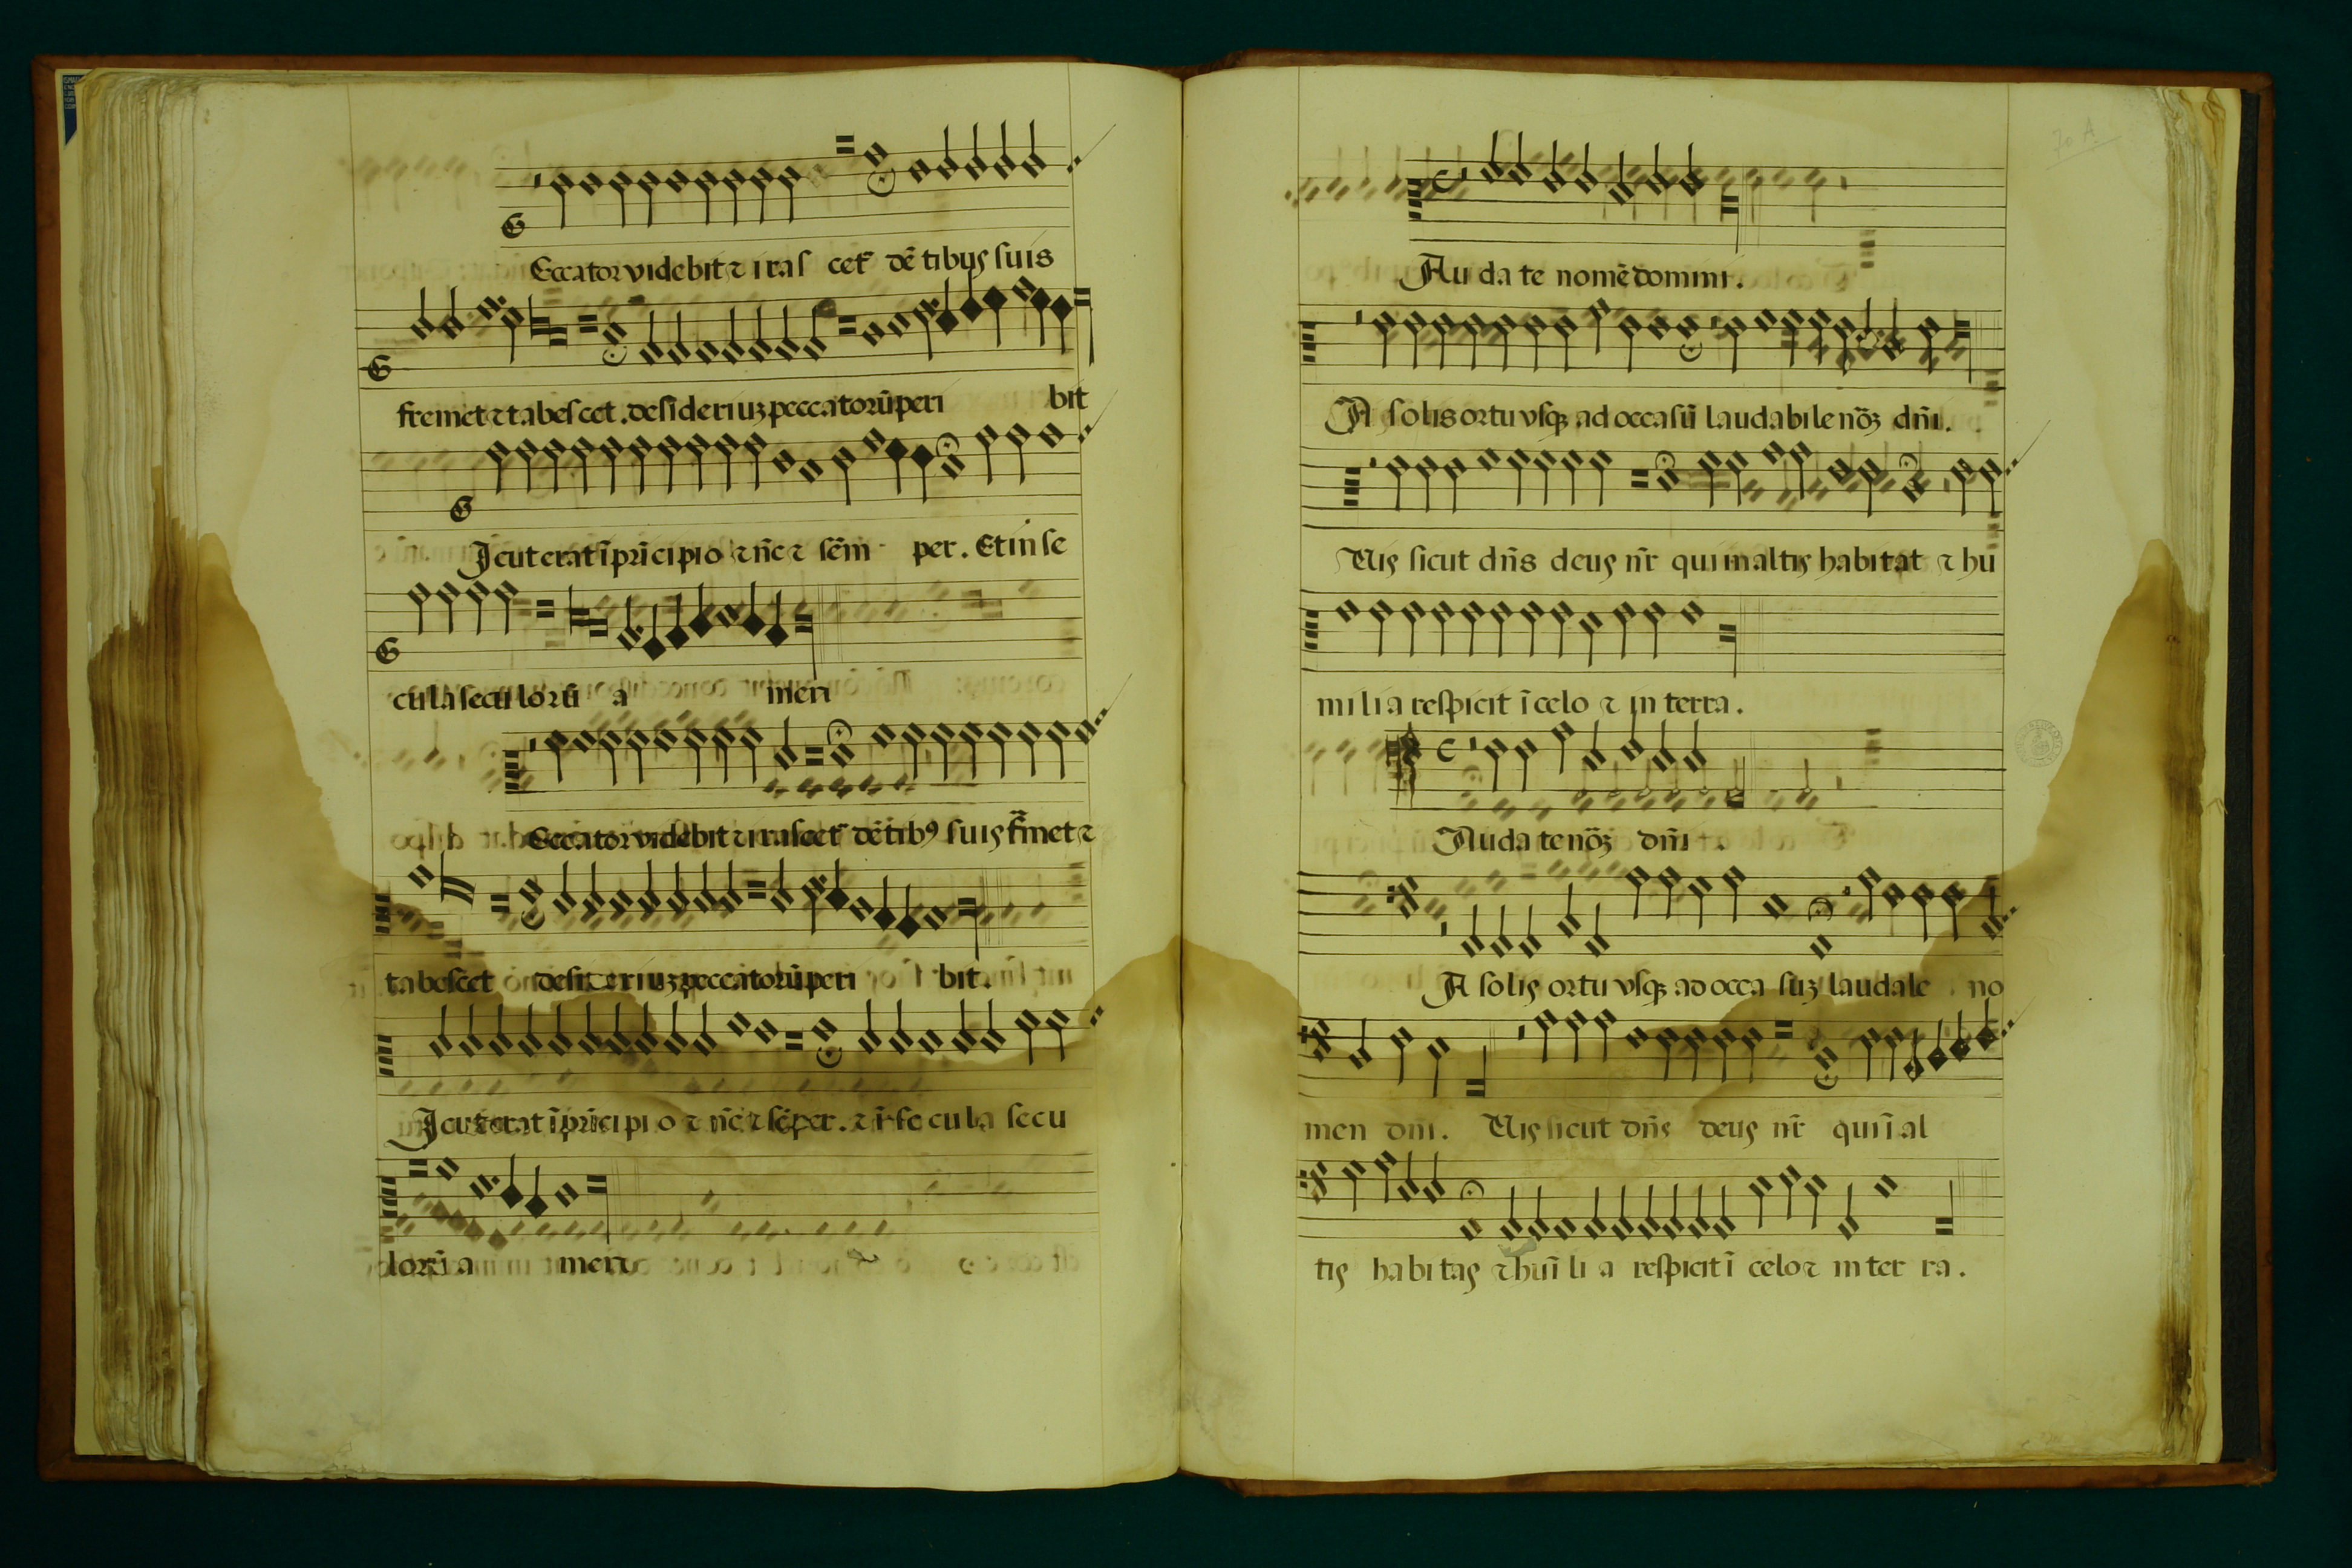 Eccator videbit ⁊ iras cet̃ dẽ tibus suis
fremet ⁊ tabes cet . desideriuꝫ peccatorũ peri bit
Icut erat ĩ prĩcipio ⁊ nc̃ ⁊ sẽm per . Et in se
cula seculorũ a men
Eccator videbit ⁊ irascet̃ dẽtibꝰ suis fr̃met ⁊
tabescet desideriuꝫ peccatorũ peri bit .
Icut erat ĩ prĩcipio ⁊ nc̃ ⁊ sẽper . ⁊ ĩ secula secu
lorũ a men
70 A
Au da te nomẽ domini .
A solis ortu vsqꝫ ad occasũ laudabile nõꝫ dñi .
Uis sicut dñs deus nr̃ qui in altis habitat ⁊ hu
milia respicit ĩ celo ⁊ in terra .
Auda te nõꝫ dñi .
A solis ortu vsqꝫ ad occa suꝫ laudale no
men dñi . Uis sicut dñs deus nr̃ qui ĩ al
tis habitas ⁊ huĩ li a respicit ĩ celo ⁊ in ter ra .